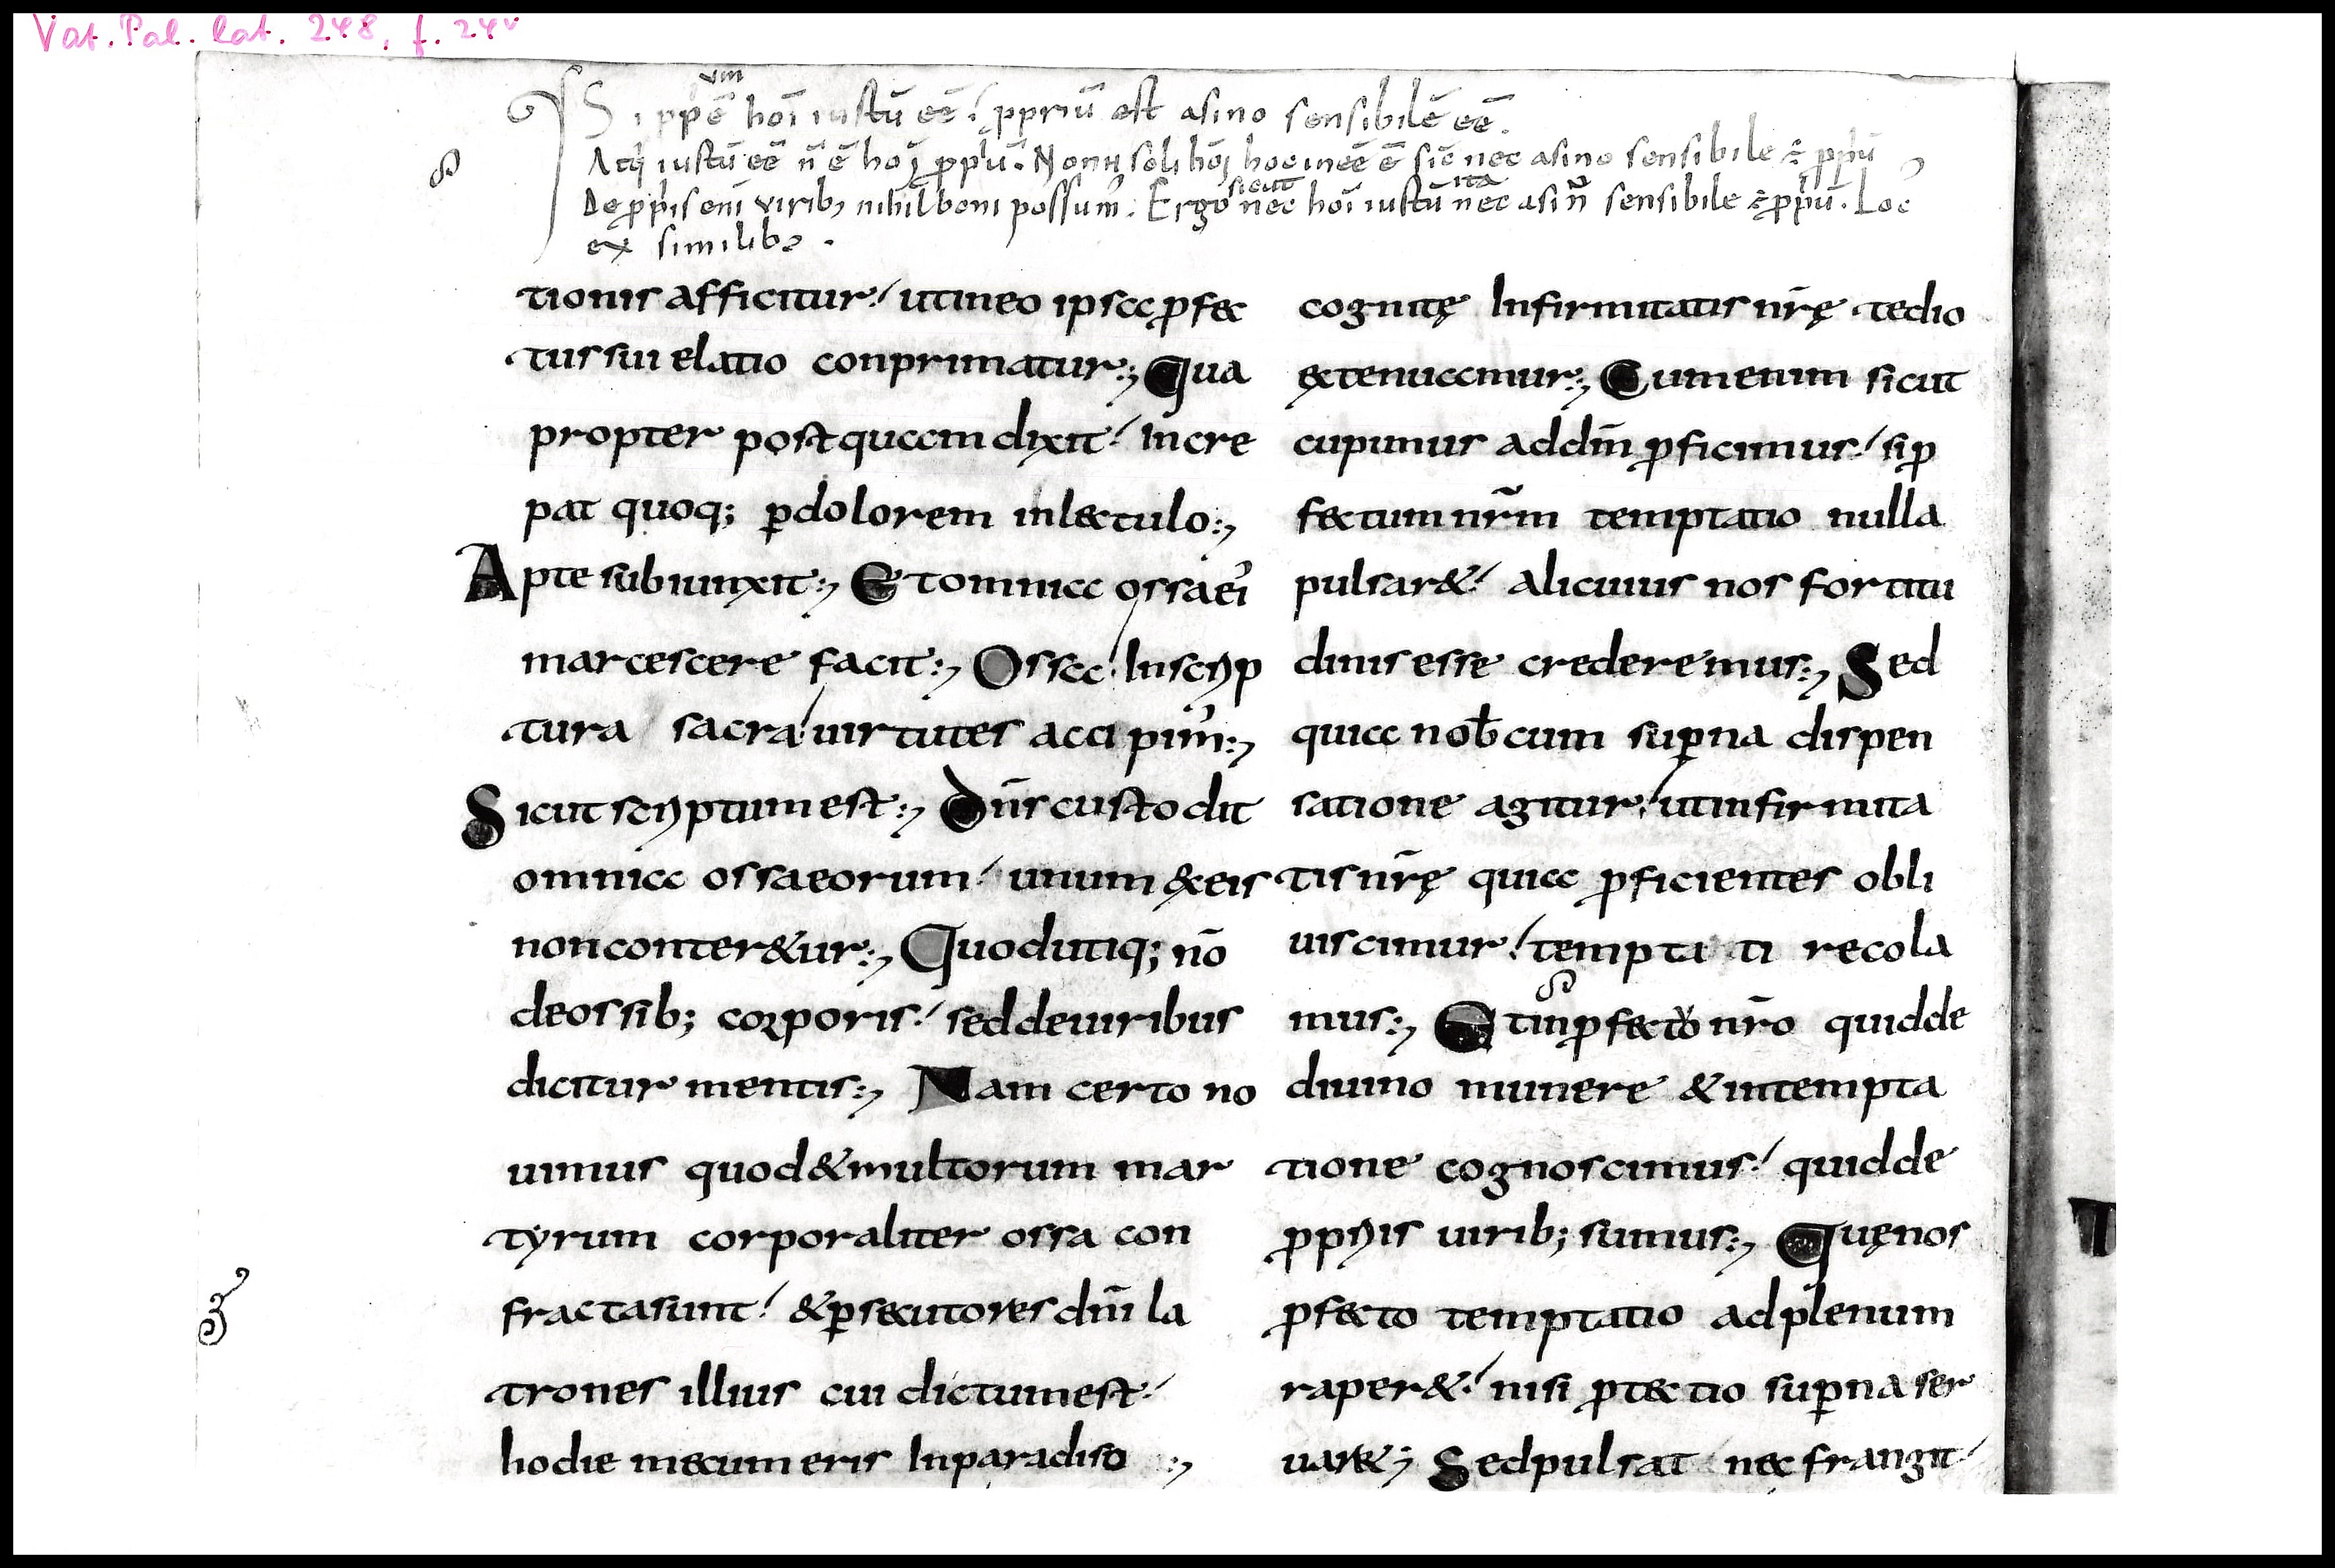 Vat. Pal. lat. 248, f. 24v
Si ꝓpⁱum hōi iustū eē ⁖ ꝓpriū est asino sensibilē eē.
Atq̨ iustū eē n̄ ē hoī ꝓpⁱū. Non soli hōi hoc ineē ē sic̄ nec asino sensibile ē ꝓpⁱū
De ꝓpⁱis eni virib; nihil boni possum᾽. Ergo sicut nec hōi iustū ita nec asinō sensibile ē ꝓpⁱū. Loc᾽
ex similib᾽.
tionis afficitur⁖ ut in eo ipsa ꝓfec
tus sui elatio conprimatur:, Qua
propter postquam dixit⁖ Incre
pat quoq; ꝑ dolorem in lectulo:,
Apte subiunxit:, Et omnia ossa ei᾽
marcescere facit:, Ossa Inscrip
tura sacra uirtutes accipim᾽:,
Sicut scriptum est:, Dn̄s custodit
omnia ossa eorum⁖ unum ex eis
non conter&ur:, Quod utiq; nō
de ossib; corporis⁖ sed de uiribus
dicitur mentis:, Nam certo no
uimus quod & multorum mar
tyrum corporaliter ossa con
fracta sunt⁖ & ꝑsecutores dn̄i la
trones illius cui dictum est⁖
hodie mecum eris In paradiso:,
cognitę Infirmitatis nr̄ę tedio
extenuamur:, Cum enim sicut
cupimus ad dm̄ ꝓficimus⁖ si ꝓ
fectum nr̄m temptatio nulla
pulsar&⁖ alicuius nos fortitu
dinis esse crederemus:, Sed
quia nob̄cum suꝑna dispen
satione agitur⁖ ut infirmita
tis nr̄ę quia ꝓficientes obli
uiscimur⁖ temptati recola
mus:, Et in ꝓfecto nr̄o quid de
diuino munere & in tempta
tione cognoscimus⁖ quid de
ꝓpriis uirib; sumus:, Quę nos
ꝓfecto temptatio ad plenum
raper&⁖ nisi ꝓtectio suꝑna ser
uar&; Sed pulsat nec frangit⁖